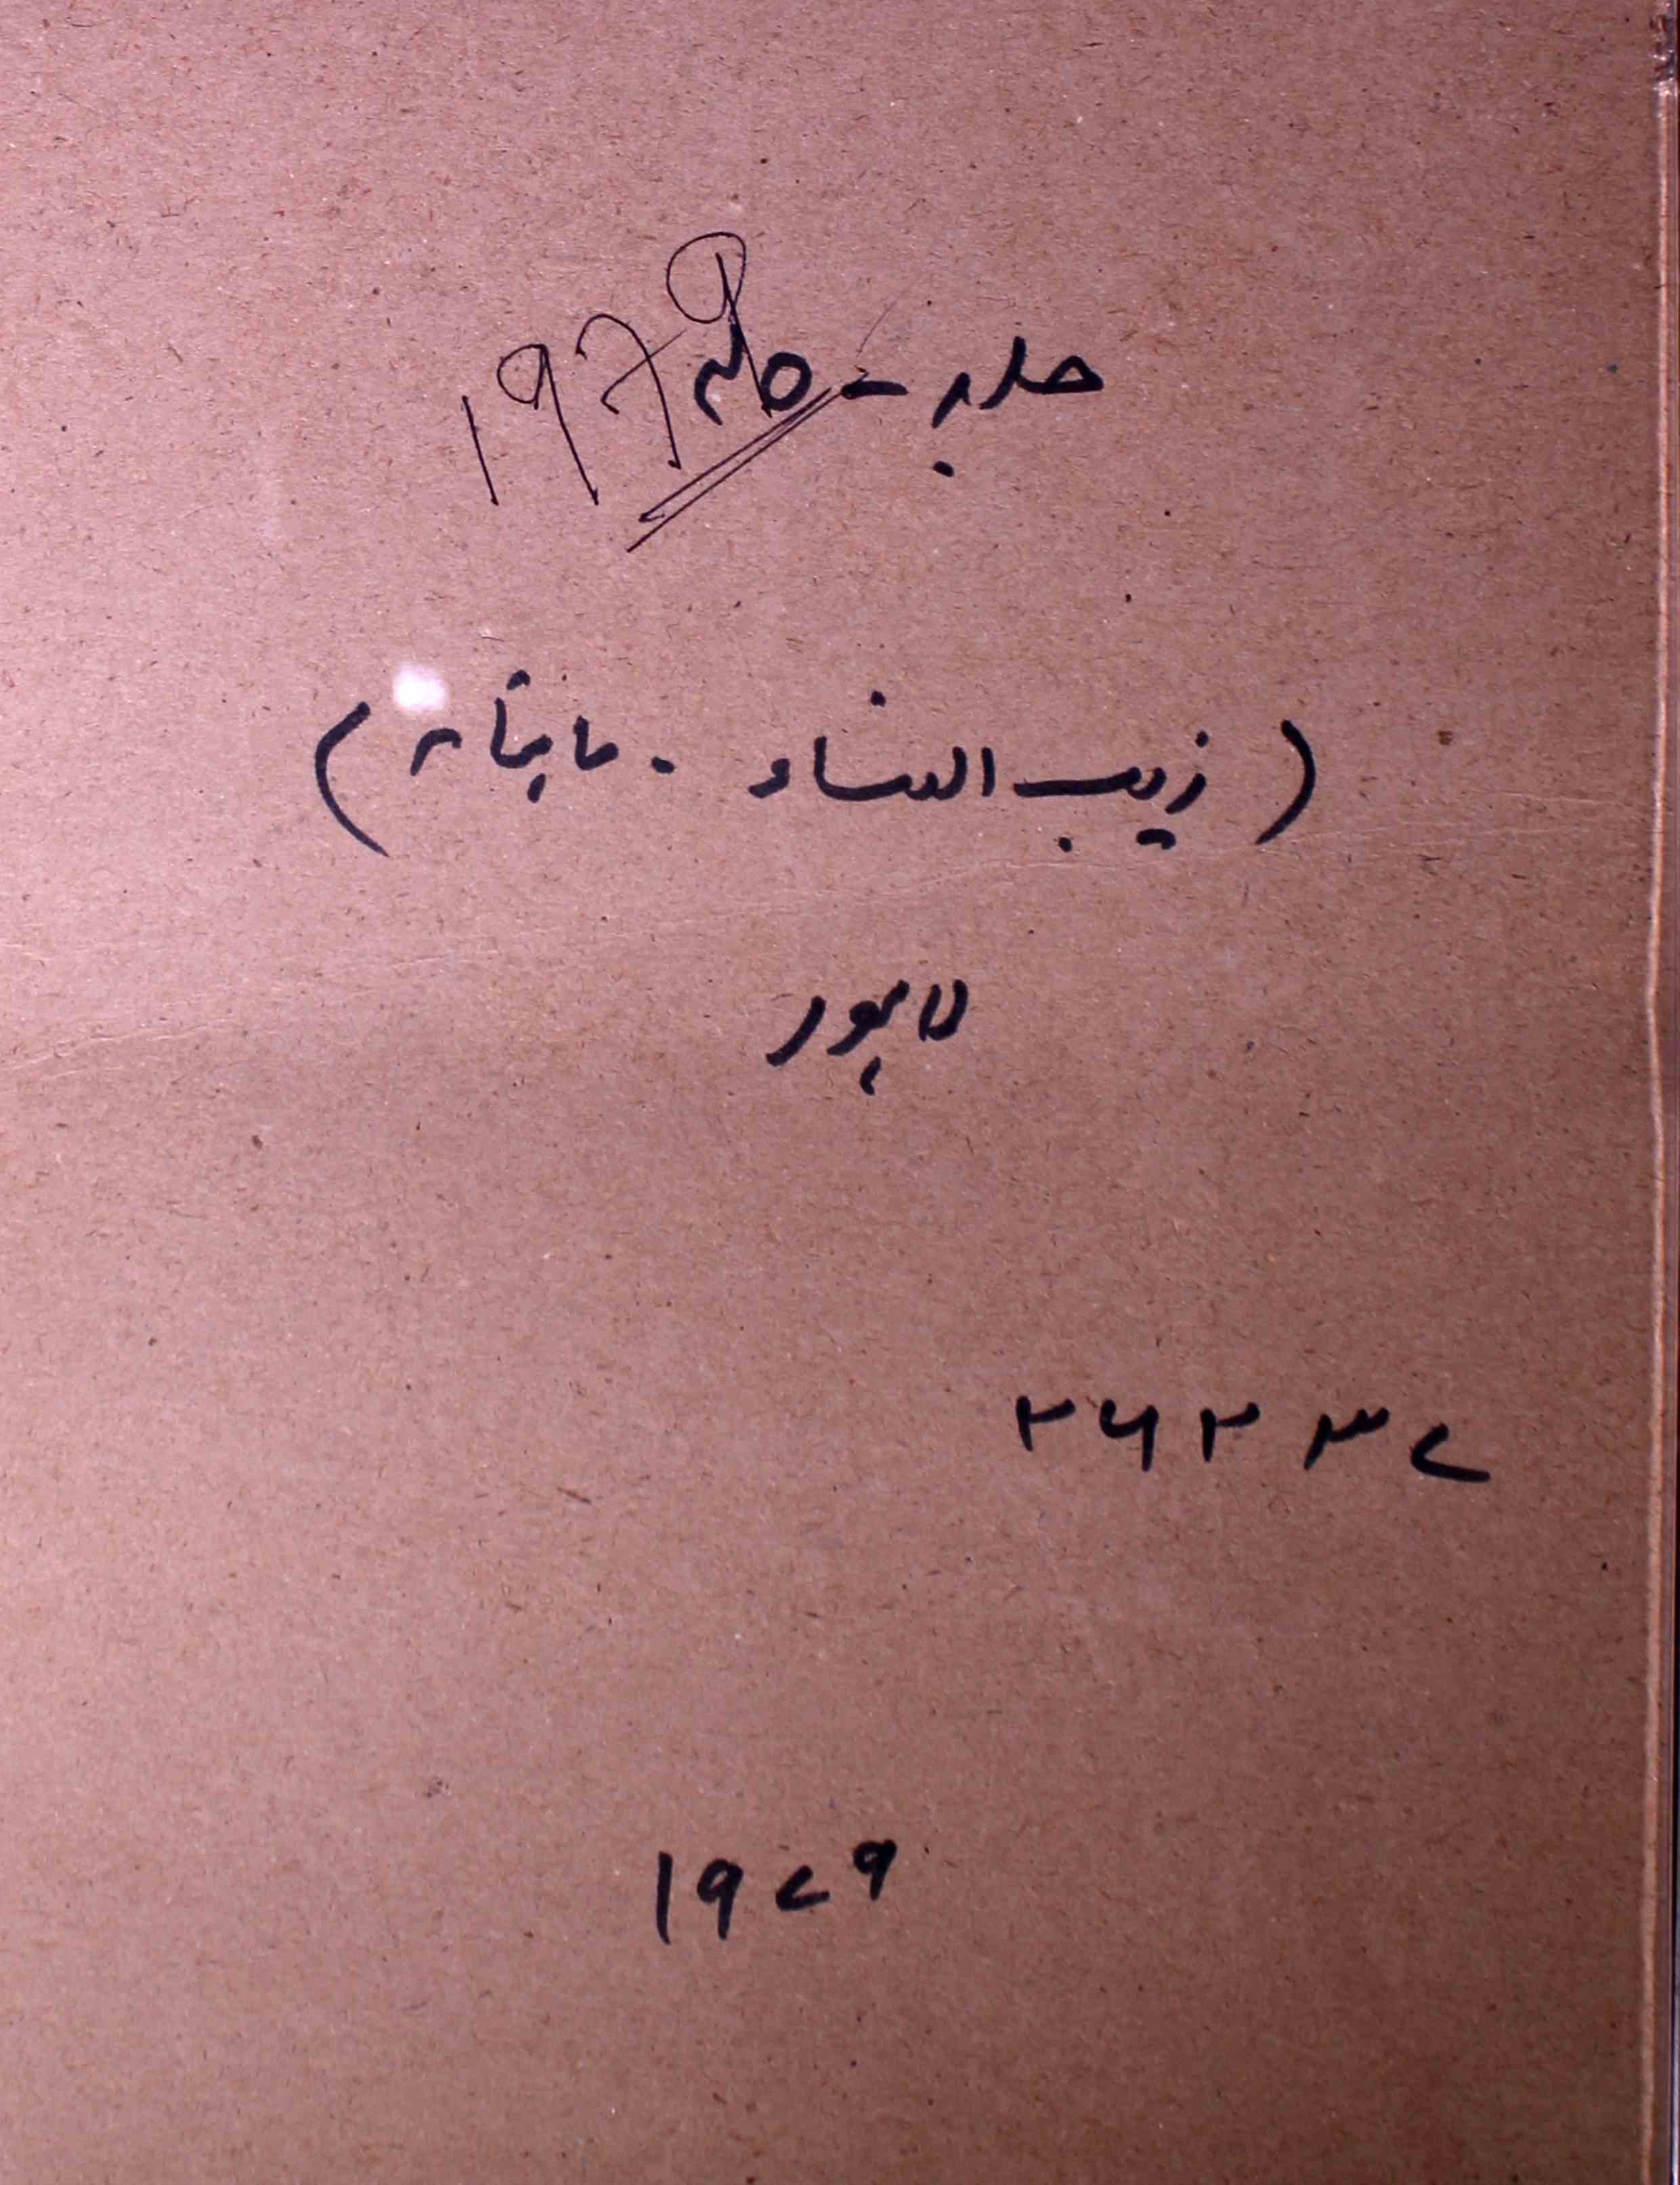 جلد - ۴۵
1979
( زیب النساء - ماہنامہ )
لاہور
۲۶۲۳۷
۱۹۷۹